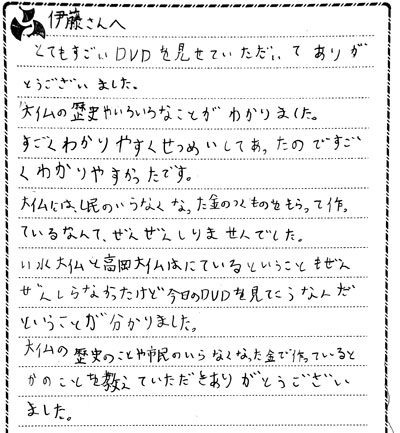 伊藤さんへ
とてもすごいDVDを見せていただいてありが
とうございました。
大仏の歴史やいろいろなことがわかりました。
すごくわかりやすくせつめいしてあったのですご
くわかりやすかったです。
大仏には、民のいらなくなった金のつくものをもらって作っ
ているなんて、ぜんぜんしりませんでした。
大仏と高岡大仏はにているということもぜん
ぜんしらなかったけど今日のDVDを見てこうなんだ
ということが分かりました。
大仏の歴史のことや市民のいらなくなった金で作っていると
かのことを教えていただきありがとうござい
ました。